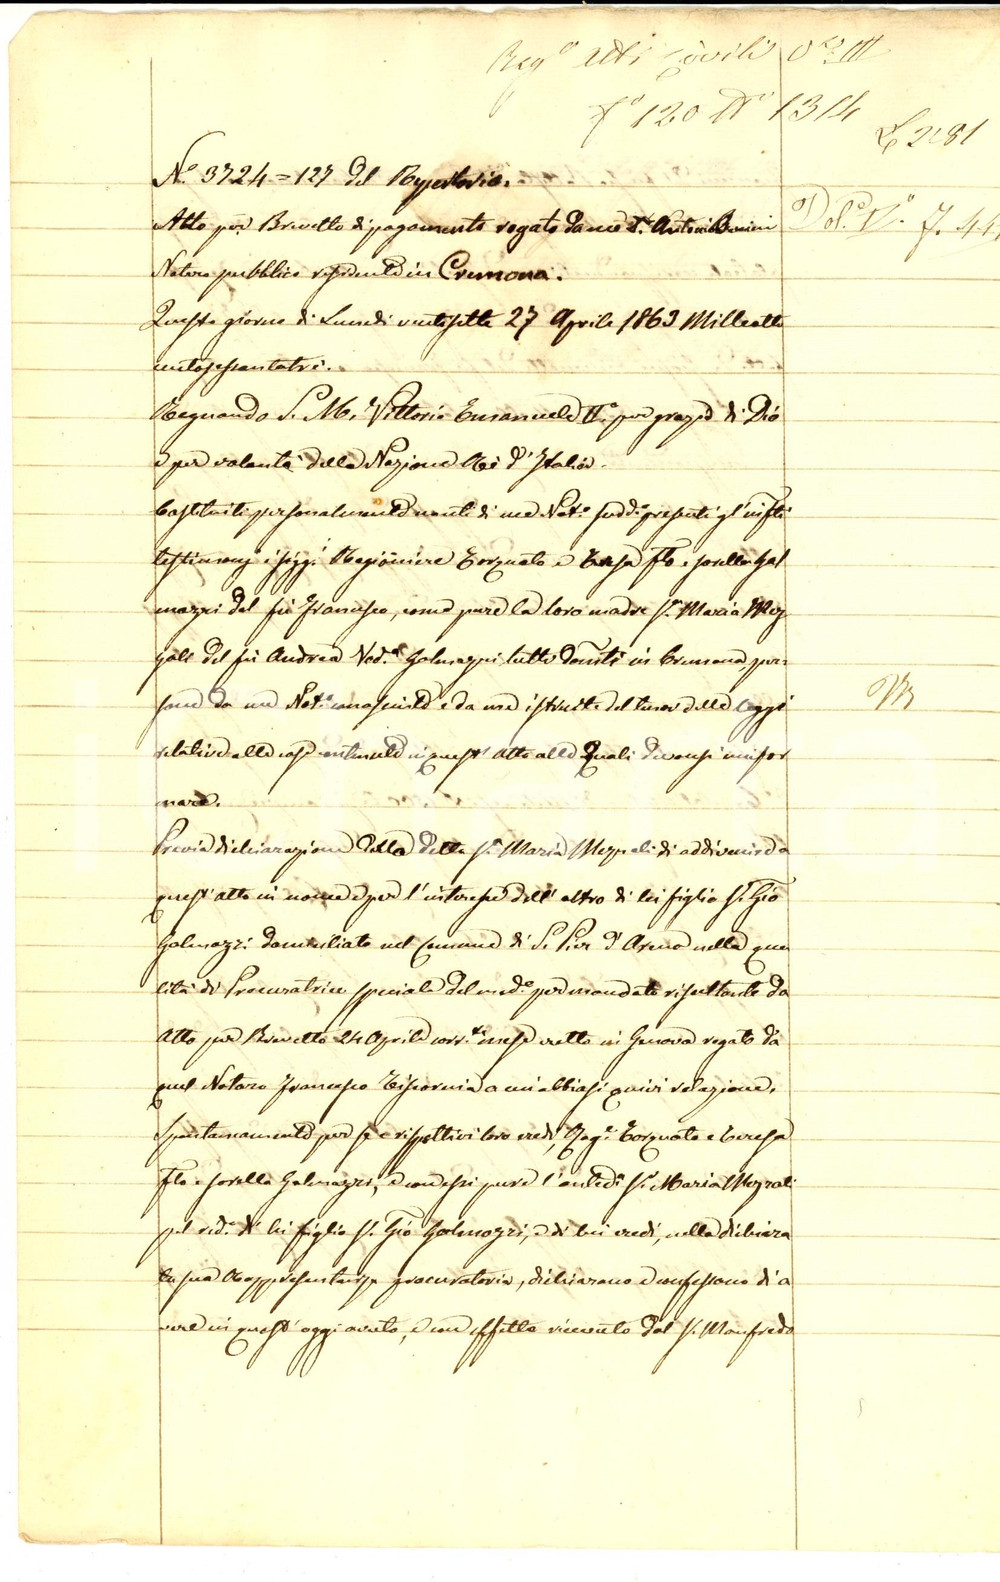 Reg.o Atti Civili V.e III
F.o 120 N.o 1314
L 2.81
N.o 3724 = 127 del Repertorio.
Atto per Brevetto di pagamento rogato da me D.r Antonio
Dol. V.
Notaro pubblico residente in Cremona.
Questo giorno di Lunedì ventisette 27 Aprile 1863 Milleotto
centosessantatrè.
Regnando S. M. Vittorio Emanuele II.o per grazia di Dio
e per volontà della Nazione Rè d'Italia.
Costituiti personalmente avanti di me Not.o sudd.o presenti gl'infti
testimonj i sigg.i Ragioniere Torquato e Teresa Flo e sorella Gal
mozzi del fù Francesco, come pure la loro madre S.a Maria Mez
zali del fù Andrea Ved.a Galmozzi tutti domti in Cremona, per
sone da me Not.o conosciute e da me istruite del tenor delle leggi
relative alle cose contenute in quest'atto alle quali devonsi unifor
mare.
Previa dichiarazione della detta S.a Maria Mezzali di addivenire a
quest'atto in nome e per l'interesse dell'altro di lei figlio S.r Gio
Galmozzi domiciliato nel Comune di S. Pier d'Arena nella qua
lità di Procuratrice speciale del med.o per mandato risultante da
Atto per Brevetto 24 Aprile corr.te mese eretto in Genova rogato da
quel Notaro Francesco a cui abbiasi quivi relazione,
Spontaneamente per sè e rispettivi loro eredi, Rag.e Torquato e Teresa
Flo e sorella Galmozzi, e con essi pure l'anted.a S.a Maria Mezzali
pel red.o di lei figlio S.r Gio Galmozzi, e di lui eredi, nella dichiara
ta sua Rappresentanza procuratoria, dichiarano e confessano di a
vere in quest'oggi avuto, e con effetto ricevuto dal S.r Manfredo